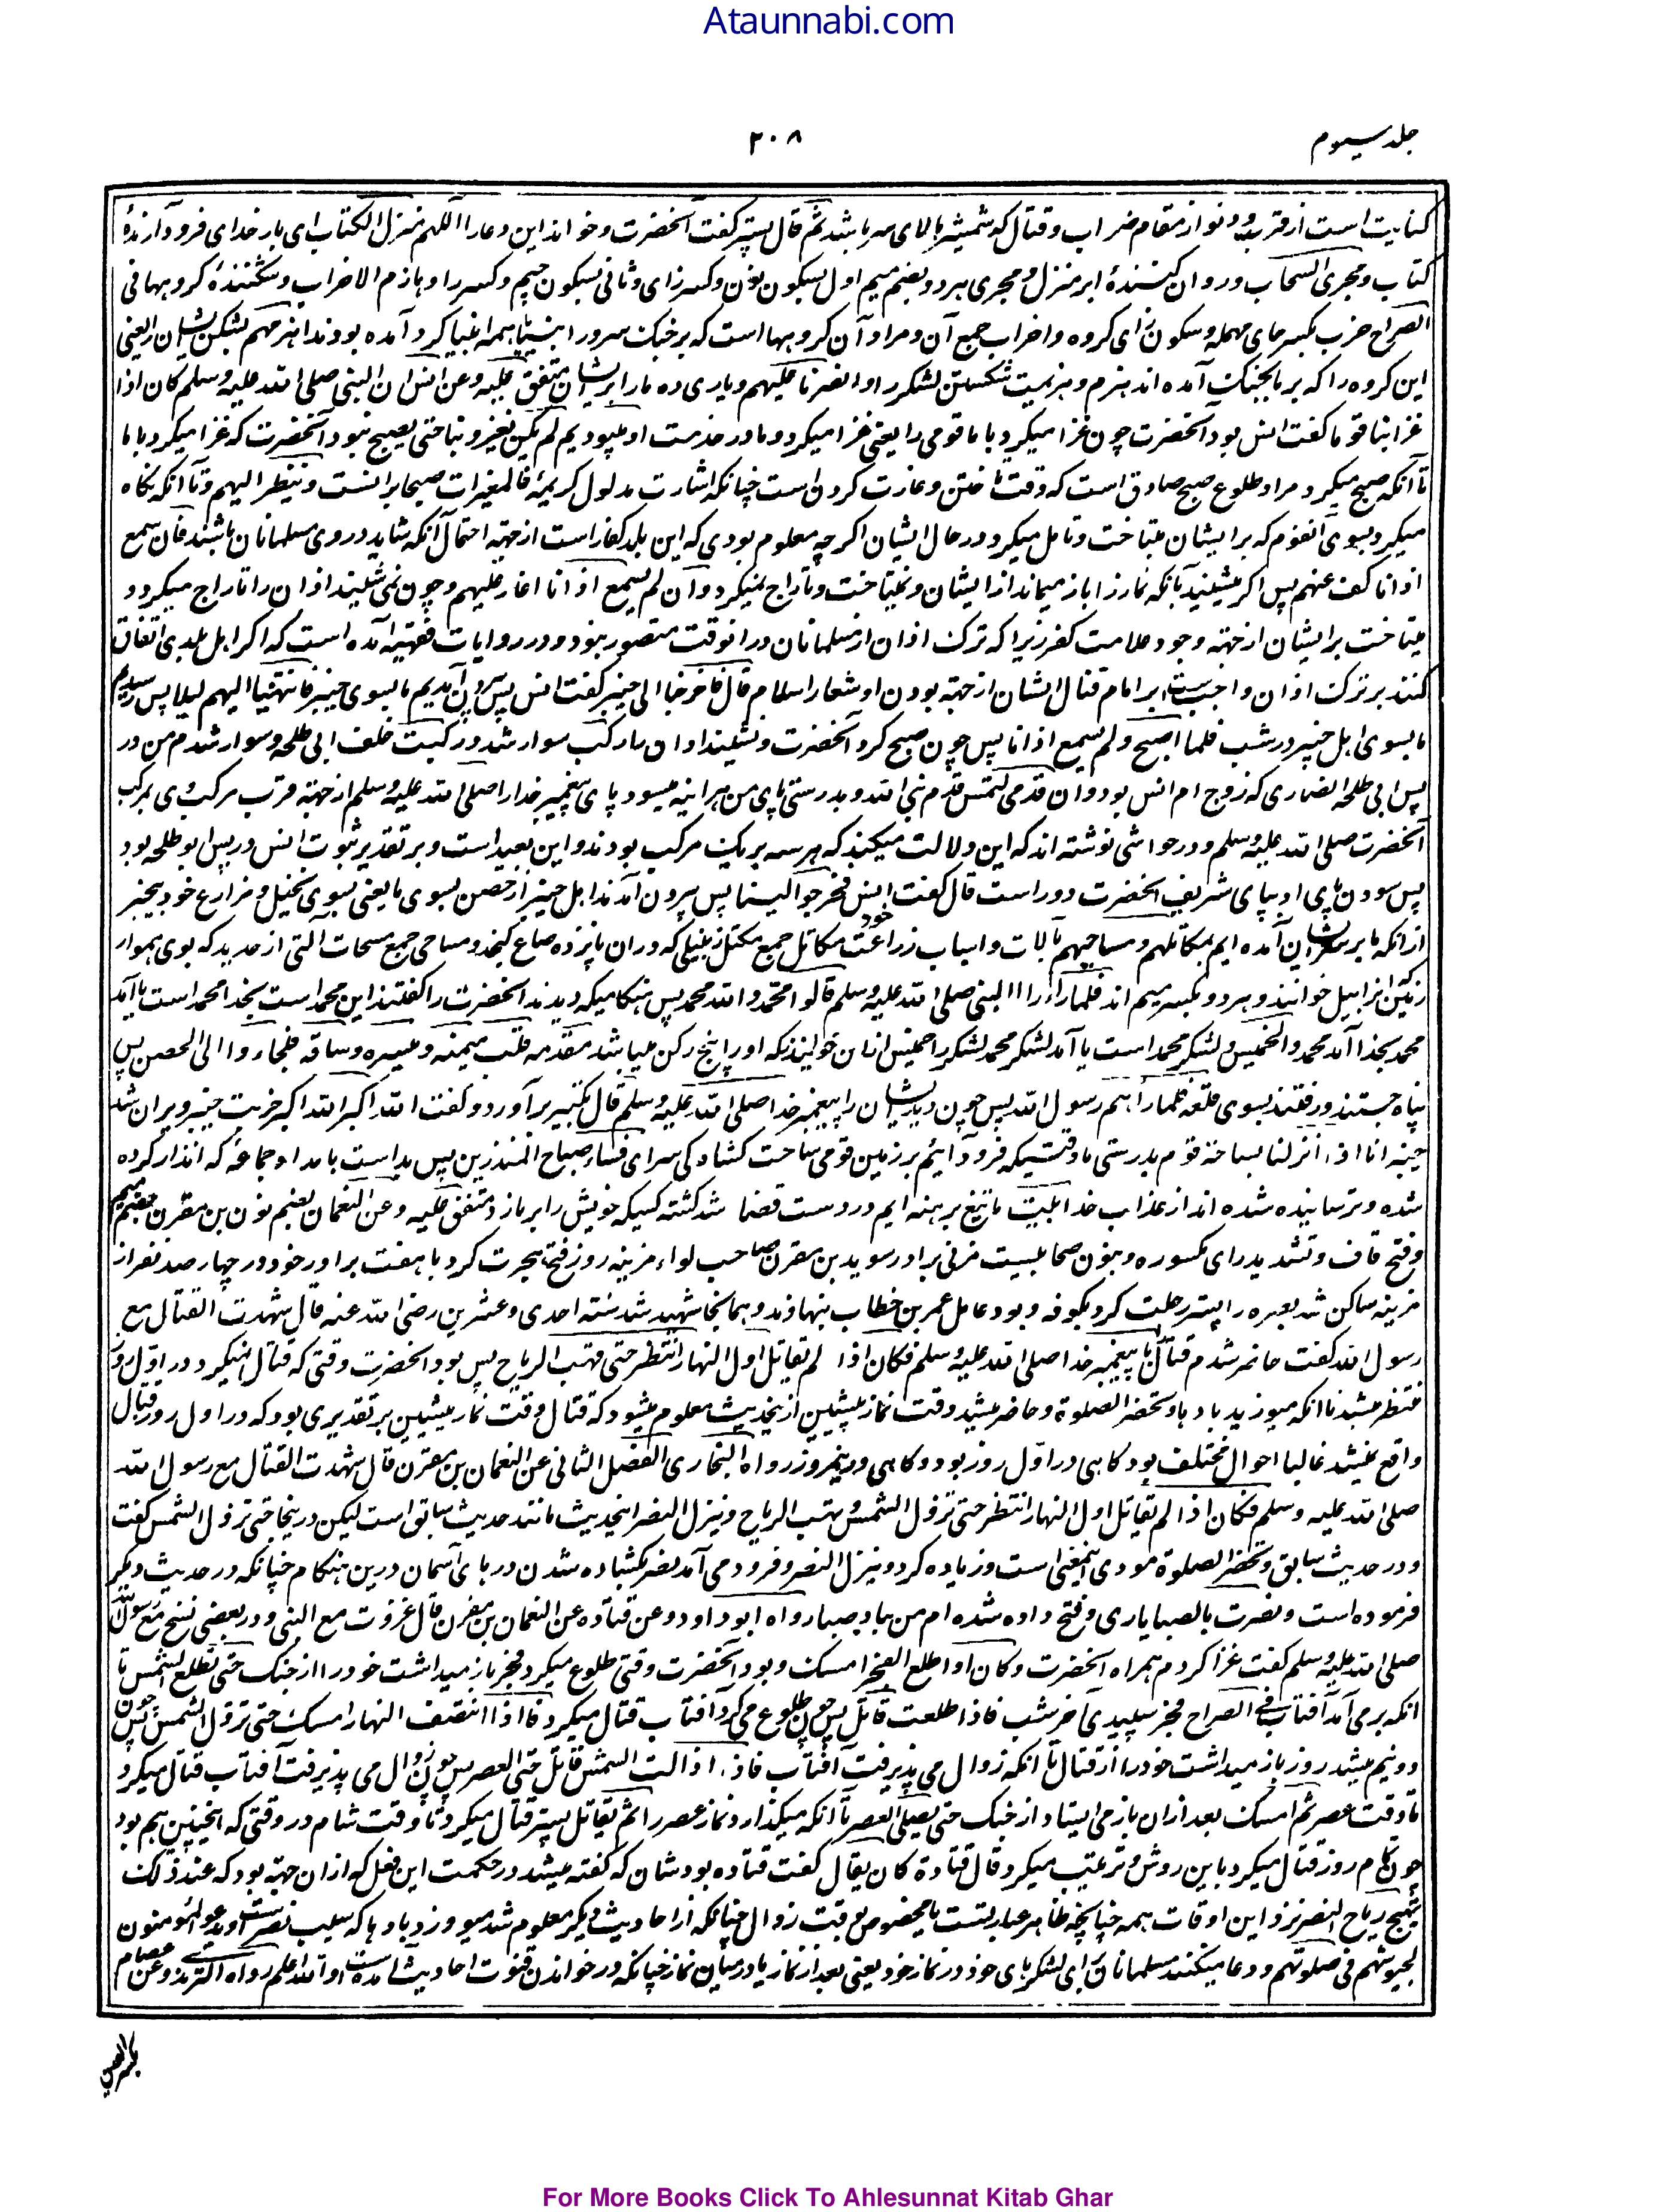 Ataunnabi.com
جلد سیوم
۲۰۸
کنایت است از قرب و دنو از مقام ضراب و قتال که شمشیر بالای سر باشد ثم قال پستر گفت آنحضرت و خواند این دعا را اللهم منزل الکتاب ای بار خدای فرود آرندهٔ
کتاب و مجری السحاب و روان کنندهٔ ابر منزل و مجری هر دو بضم میم اول بسکون نون و کسر زای و ثانی بسکون جیم و کسر را و هازم الاحزاب و شکنندهٔ گروهها فی
الصراح حزب بکسر حای مهمله و سکون زای گروه و احزاب جمع آن و مراد آن گروهها است که بر جنگ سرور انبیا همه اغبیا گرد آمده بودند اهزمهم بشکن ایشان را یعنی
این گروه را که بر ما بجنگ آمده اند هزم و هزیمت شکستن لشکر را و انصرنا علیهم و یاری ده ما را بر ایشان متفق علیه و عن انس ان النبی صلی الله علیه وسلم کان اذا
غزا بنا قوما گفت انس بود آنحضرت چون غزا میکرد با ما قومی را یعنی غزا میکرد و ما در خدمت او میبودیم لم یکن یغیر و بنا حتی یصبح نبود آنحضرت که غزا میکرد با ما
تا آنکه صبح میکرد مراد طلوع صبح صادق است که وقت تاختن و غارت کردن است چنانکه اشارت مدلول کریمهٔ فالمغیرات صبحا بر انست و ینظر الیهم و تا آنکه نگاه
میکرد بسوی آنقوم که بر ایشان میتاخت و تامل میکرد در حال ایشان اگرچه معلوم بودی که این بلد کفار است از جهة احتمال آنکه شاید در وی مسلمانان باشند فان سمع
اذانا کف عنهم پس اگر میشنید بانک نماز را باز میماند از ایشان و نمیتاخت و تاراج نمیکرد و ان لم یسمع اذانا اغار علیهم و چون نمی شنید اذان را تاراج میکرد و
میتاخت بر ایشان از جهة وجود علامت کفر زیرا که ترک اذان از مسلمانان در انوقت متصور نبود و در روایات فقهیه آمده است که اگر اهل بلدی اتفاق
کنند بر ترک اذان واجب است بر امام قتال ایشان از جهة بودن او شعار اسلام قال فخرجنا الی خیبر گفت انس پس بیرون آمدیم ما بسوی خیبر فانتهینا الیهم لیلا پس رسیدیم
ما بسوی اهل خیبر در شب فلما اصبح و لم یسمع اذانا پس چون صبح کرد آنحضرت و نشنید اذان را رکب سوار شد و رکبت خلف ابی طلحه و سوار شدم من در
پس ابی طلحه انصاری که زوج ام انس بود و ان قدمی لتمس قدم نبی الله و بدرستی پای من هر اینه میسود پای پیغمبر خدا را صلی الله علیه وسلم از جهة قرب مرکب وی بمرکب
آنحضرت صلی الله علیه وسلم و در حواشی نوشته اند که این دلالت میکند که هر سه بر یک مرکب بودند و این بعید است و بر تقدیر ثبوت انس در پس ابو طلحه بود
پس سودن پای او بپای شریف آنحضرت دور است قال گفت انس فخرجوا الینا پس بیرون آمدند اهل خیبر از حصن بسوی ما یعنی بسوی نخیل و مزارع خود بیخبر
ازانکه ما بر سر ایشان آمده ایم بمکاتلهم و مساحیهم بالات و اسباب زراعت خود مکاتل جمع مکتل زنبیلی که دران پانزده صاع گنجد و مساحی جمع مسحات آلتی از حدید که بوی هموار
زمین کنند انرا بیل خوانند و هر دو بکسر میم اند فلما راوا النبی صلی الله علیه وسلم قالوا محمد و الله محمد پس هنگامیکه دیدند آنحضرت را گفتند این محمد است بخدا محمد است یا آمد
محمد بخدا آمد محمد و الخمیس و لشکر محمد است یا آمد لشکر محمد لشکر را خمیس ازان خوانند که او را پنج رکن میباشد مقدمه قلب میمنه و میسره و ساقه فلجاءوا الی الحصن پس
پناه جستند و رفتند بسوی قلعه فلما رآهم رسول الله پس چون دید ایشان را پیغمبر خدا صلی الله علیه وسلم قال تکبیر برآورد و گفت الله اکبر الله اکبر خربت خیبر ویران شد
خیبر انا اذا نزلنا بساحة قوم بدرستی ما وقتیکه فرود آئیم بر زمین قومی ساحت کشادگی سرای فساء صباح المنذرین پس بد است بامداد جماعهٔ که انذار کرده
شده و ترسانیده شده اند از عذاب خدا بیت ما تیغ برهنه ایم در دست قضا شد کشته کسیکه خویش را بر ما زد متفق علیه و عن النعمان بضم نون بن مقرن بضم میم
و فتح قاف و تشدید رای مکسوره و بنون صحابیست مزنی برادر سوید بن مقرن صاحب لواء مزینه روز فتح هجرت کرد با هفت برادر خود در چهار صد نفر از
مزینه ساکن شد بصره را پستر رحلت کرد بکوفه و بود عامل عمر بن خطاب بنهاوند و همانجا شهید شد سنه احدی و عشرین رضی الله عنه قال شهدت القتال مع
رسول الله گفت حاضر شدم قتال با پیغمبر خدا صلی الله علیه وسلم فکان اذا لم یقاتل اول النهار انتظر حتی تهب الریاح پس بود آنحضرت وقتی که قتال نمیکرد در اول روز
منتظر میشد تا آنکه میوزید بادها و تحضر الصلوة و حاضر میشد وقت نماز پیشین ازینحدیث معلوم میشود که قتال وقت نماز پیشین بر تقدیری بود که در اول روز قتال
واقع نمیشد غالبا احوال مختلف بود گاهی در اول روز بود و گاهی در نیمروز رواه البخاری الفصل الثانی عن النعمان بن مقرن قال شهدت القتال مع رسول الله
صلی الله علیه وسلم فکان اذا لم یقاتل اول النهار انتظر حتی تزول الشمس و تهب الریاح و ینزل النصر اینحدیث مانند حدیث سابق است لیکن درینجا حتی تزول الشمس گفت
و در حدیث سابق و تحضر الصلوة مودی اینمعنی است و زیاده کرد و ینزل النصر و فرود می آمد نصر بکشاده شدن درهای آسمان درین هنگام چنانکه در حدیث دیگر
فرموده است و نصرت بالصبا یاری و فتح داده شده ام من بباد صبا رواه ابو داود و عن قتاده عن النعمان بن مقرن قال غزوت مع النبی و در بعضی نسخ مع رسول الله
صلی الله علیه وسلم گفت غزا کردم همراه آنحضرت و کان اذا طلع الفجر امسک و بود آنحضرت وقتی طلوع میکرد فجر باز میداشت خود را از جنگ حتی تطلع الشمس تا
انکه بر می آمد آفتاب فی الصراح فجر سپیدی آخر شب فاذا طلعت قاتل پس چون طلوع می کرد آفتاب قتال میکرد فاذا انتصف النهار امسک حتی تزول الشمس پس چون
دو نیم میشد روز باز میداشت خود را از قتال تا آنکه زوال می پذیرفت آفتاب فاذا زالت الشمس قاتل حتی العصر پس چون زوال می پذیرفت آفتاب قتال میکرد
تا وقت عصر ثم امسک بعد ازان باز می ایستاد از جنگ حتی یصلی العصر تا آنکه میگذارد نماز عصر را ثم یقاتل پستر قتال میکرد تا وقت شام در وقتی که اینچنین هم بود
چون تمام روز قتال میکرد باین روش و ترتیب میکرد قال قتادة کان یقال گفت قتاده بود شان که گفته میشد در حکمت این فعل که ازان جهة بود که عند ذلک
تهیج ریاح النصر نزد این اوقات همه چنانچه ظاهر عبارتست یا مخصوص بوقت زوال چنانکه از احادیث دیگر معلوم شد میوزد بادها که سبب نصرت است و یدعو المؤمنون
لجیوشهم فی صلوتهم و دعا میکنند مسلمانان برای لشکرهای خود در نماز خود یعنی بعد از نماز یا در میان نماز چنانکه در خواندن قنوت احادیث آمده است و الله اعلم رواه الترمذی و عن عصام
For More Books Click To Ahlesunnat Kitab Ghar